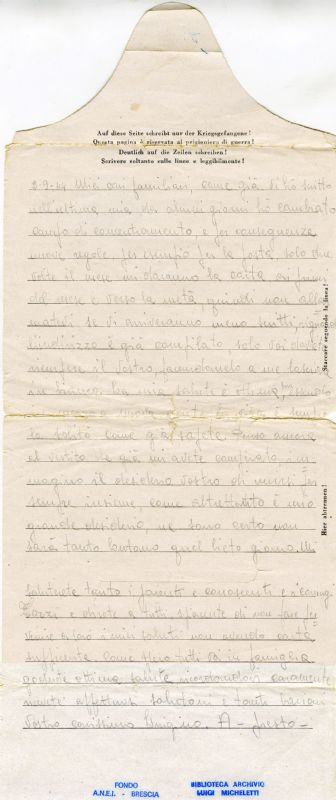 Auf diese Seite schreibt nur der Kriegsgefangene!
Questa pagina è riservata al prigioniero di guerra!
Deutlich auf die Zeilen schreiben!
Scrivere soltanto sulle linee e leggibilmente!
2-9-44 Miei cari familiari, come già vi ho scritto
nell'ultima mia da alcuni giorni ho cambiato
campo di concentramento e per conseguenza
nuove regole, per esempio per la posta, solo due
volte il mese mi daranno la carta ai primi
del mese e verso la metà, quindi non
se vi arriveranno meno scritti,
l'indirizzo è già compilato, solo voi dovete
riempire il vostro,
in bianco. La mia salute è ottima,
la vita è sempre
la solita come già sapete. Penso ancora
al vestito che già mi avete comperato, im-
magino il desiderio vostro di unirsi per
sempre insieme, come altrettanto è mio
grande desiderio, ne sono certo non
sarà tanto lontano quel lieto giorno. Mi
salutate tanto i parenti e conoscenti e
e direte a tutti
i miei saluti non avendo carta
sufficiente come spero tutti voi in famiglia
godrete ottima salute ricordandovi caramente
affettuosi salutoni e tanti bacioni
vostro carissimo Luigino. A - presto -
Staccare seguendo la linea!
Hier abtrennen!
FONDO
A.N.E.I. - BRESCIA
BIBLIOTECA ARCHIVIO
LUIGI MICHELETTI